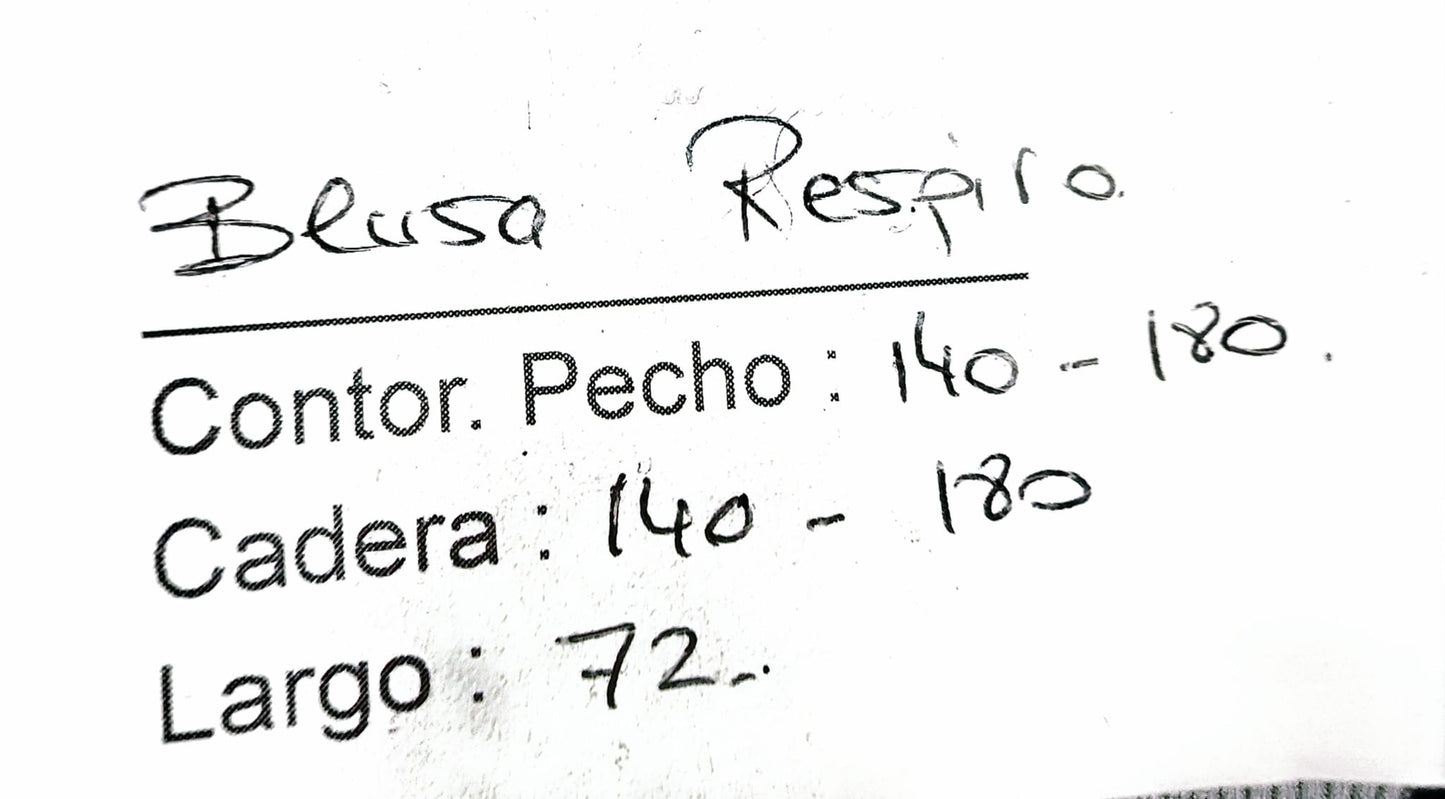 Blusa Respiro.
Contor. Pecho : 140 - 180.
Cadera : 140 - 180
Largo : 72.